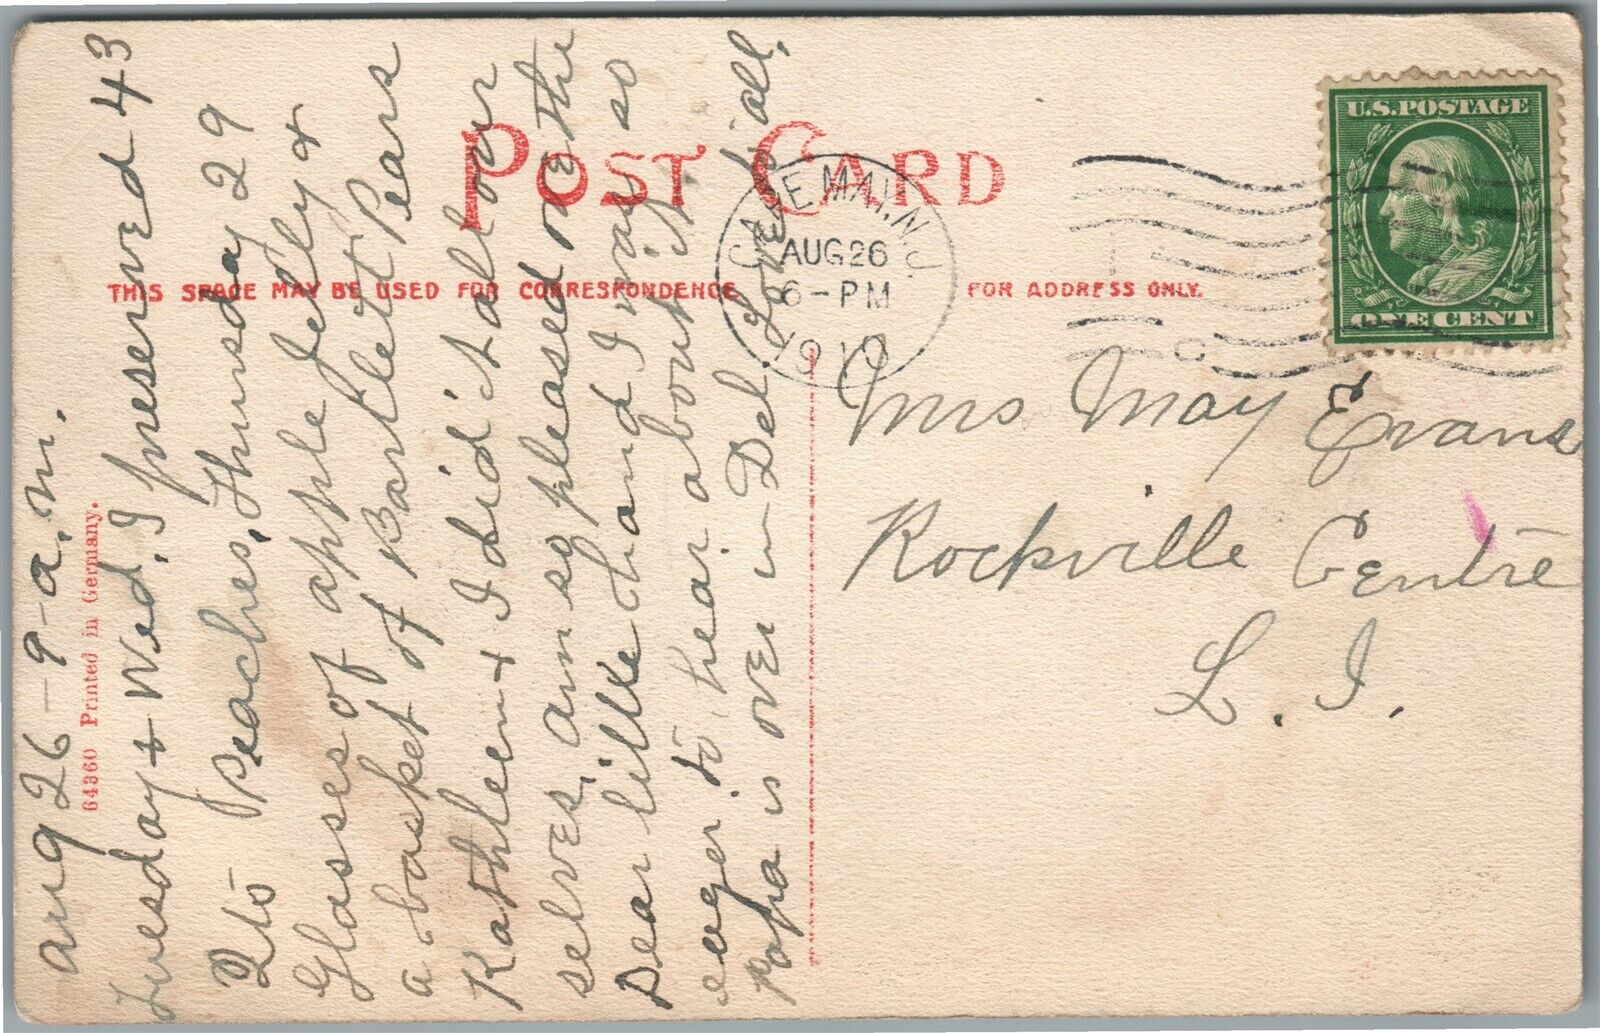 POST CARD
THIS SPACE MAY BE USED FOR CORRESPONDENCE
FOR ADDRESS ONLY.
64360 Printed in Germany.
U.S. POSTAGE
ONE CENT
CAPE MAY, N.J.
AUG 26
6-PM
1910
Aug 26-9-a.m.
Tuesday + Wed. I preserved 43
Qts Peaches, Thursday 29
Glasses of apple Jelly +
a basket of Bartlett Pears
Kathleen + I did it all our
selves, am so pleased over the
Dear little hand I was so
eager to hear about it.
Papa is over in Del. Love to all.
Mrs May E Evans
Rockville Centre
L. I.